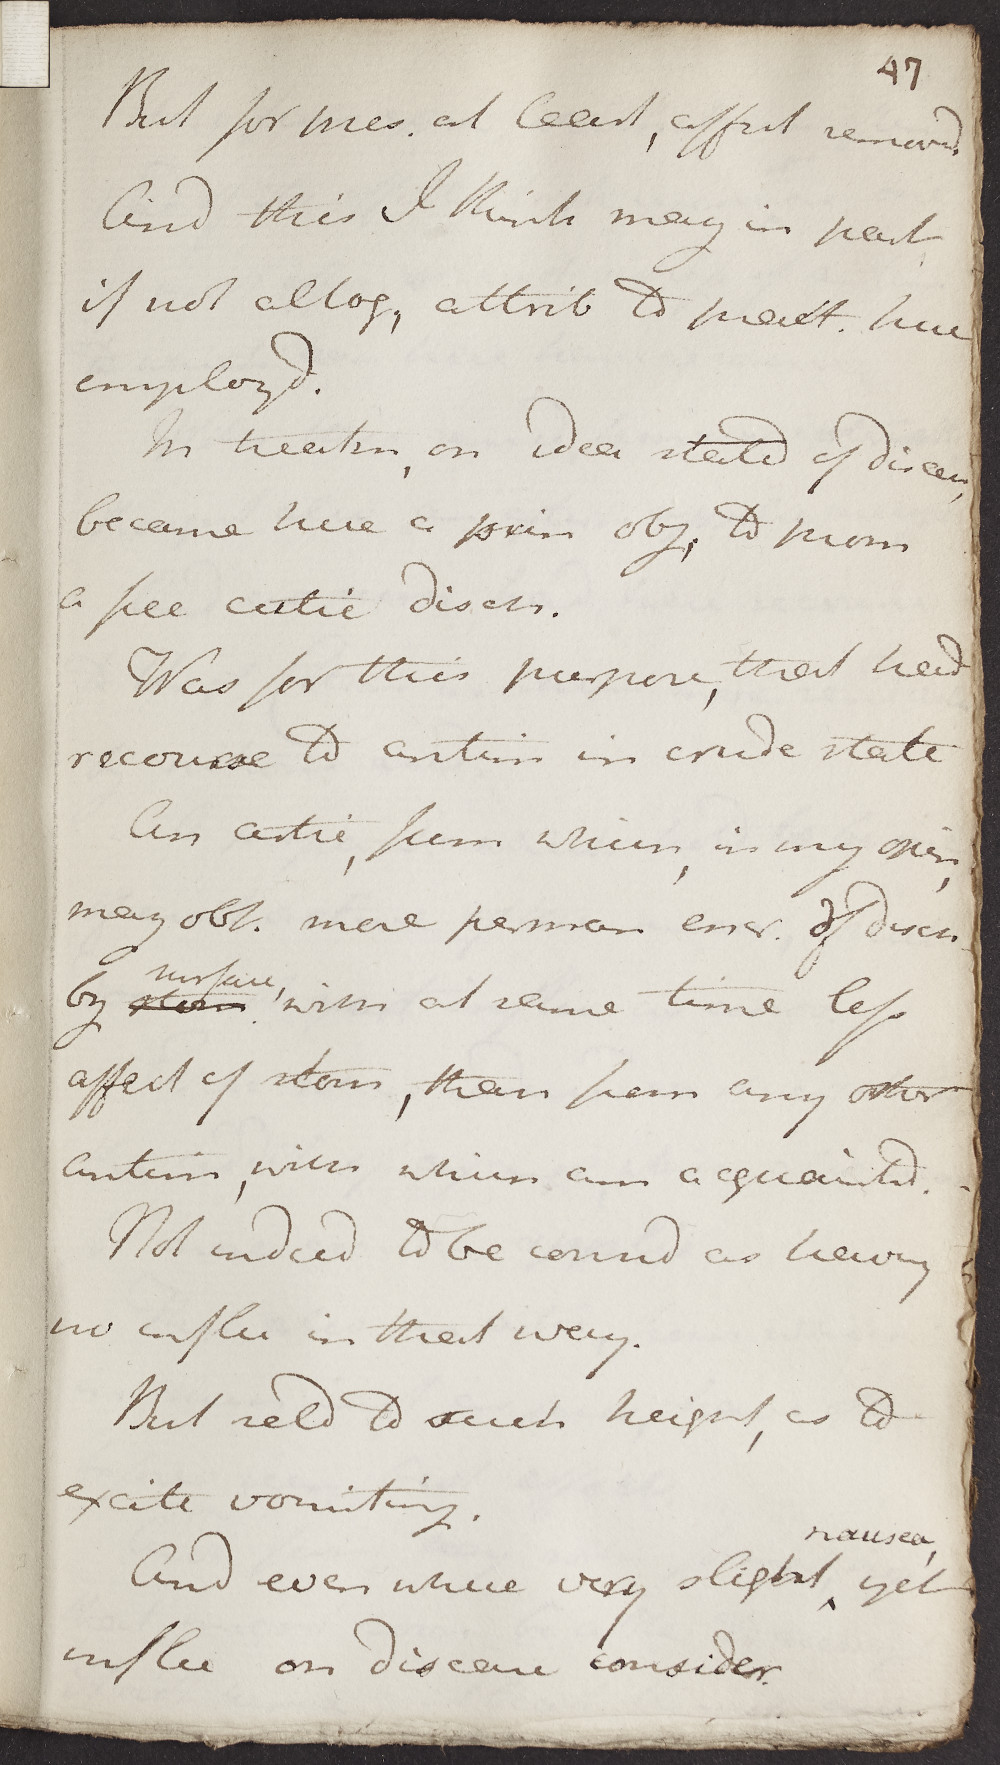 47
But for pres. at least, affect removd
And this I think may in part
if not altog, attrib to pract. here
employd.
In treatm, on idea statd of diseas,
became here a prin obj, to prom
a free cutic disch.
Was for this purpose, that had
recourse to antim in crude state
An artic, from which, in my opin,
may obt. more perman ener. of disch
by stom surface, with at same time less
affect of stom, than from any other
antim, with which am acquaintd.
Not indeed to be consd as having
no influ in that way.
But seld to such height, as to
excite vomiting.
And even where very slight nausea, yet
influ on disease consider.